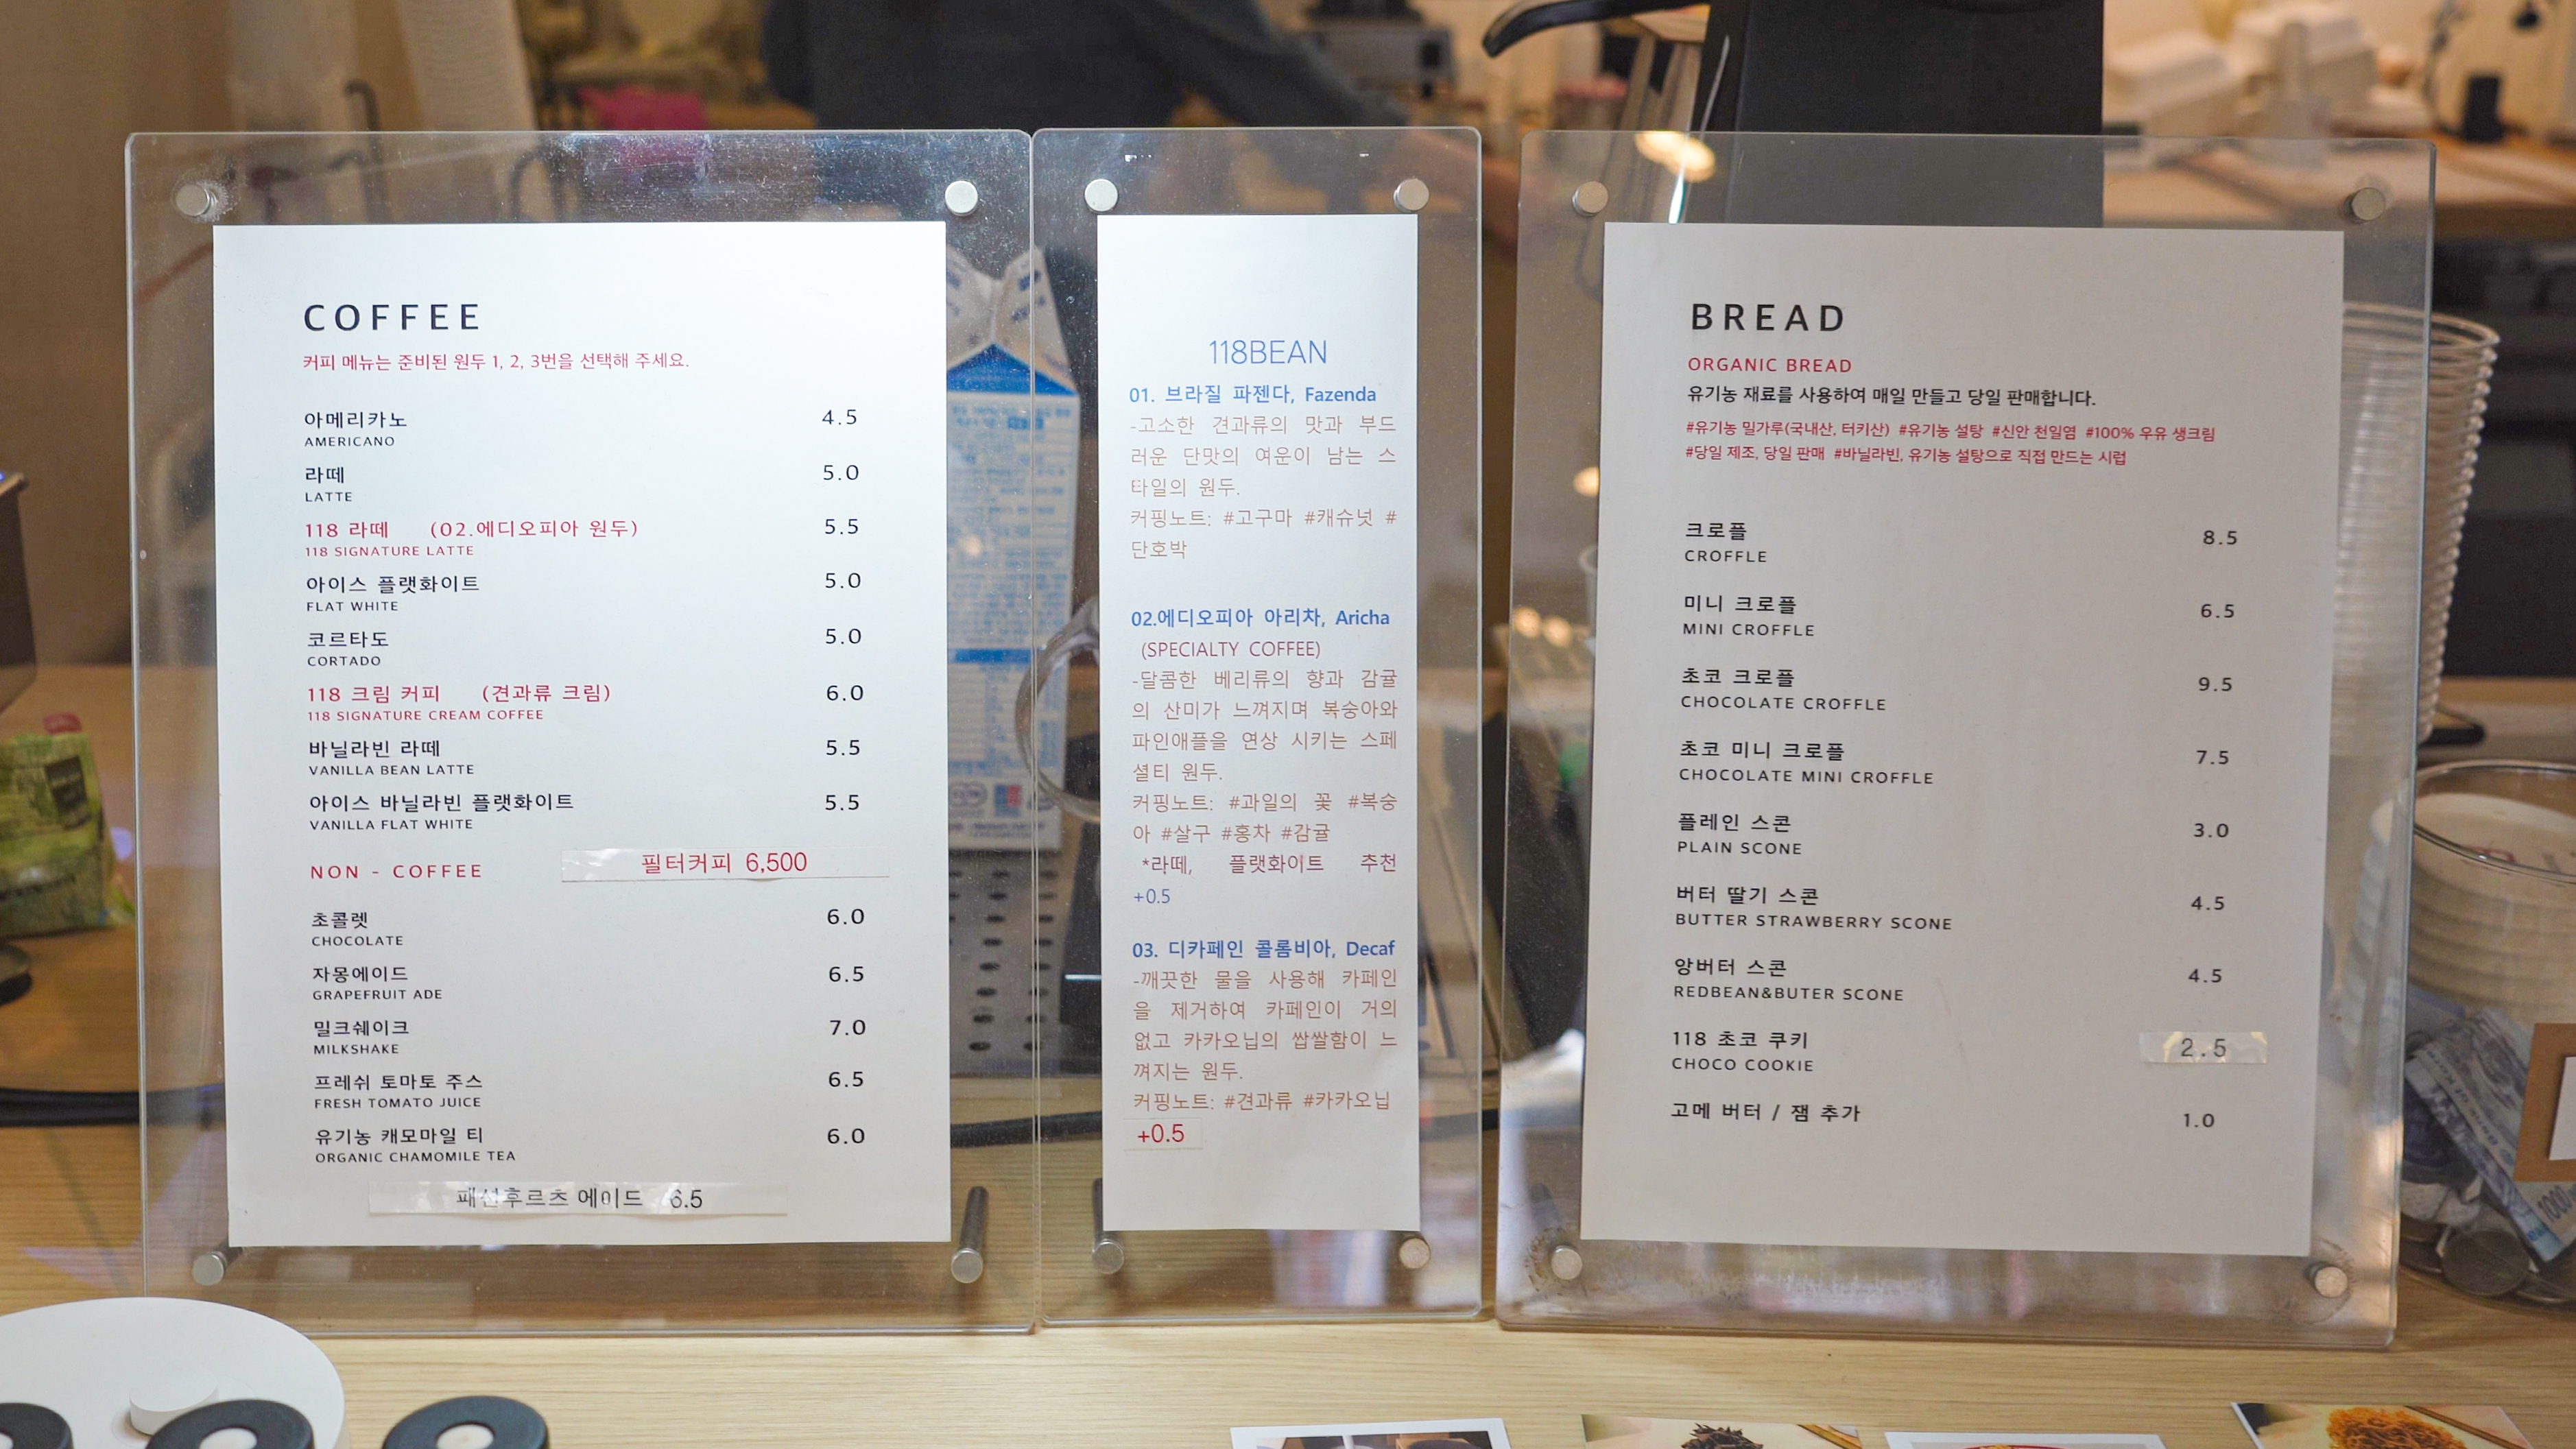 COFFEE
커피 메뉴는 준비된 원두 1, 2, 3번을 선택해 주세요.
아메리카노 4.5
AMERICANO
라떼 5.0
LATTE
118 라떼 (02.에디오피아 원두) 5.5
118 SIGNATURE LATTE
아이스 플랫화이트 5.0
FLAT WHITE
코르타도 5.0
CORTADO
118 크림 커피 (견과류 크림) 6.0
118 SIGNATURE CREAM COFFEE
바닐라빈 라떼 5.5
VANILLA BEAN LATTE
아이스 바닐라빈 플랫화이트 5.5
VANILLA FLAT WHITE
NON - COFFEE 필터커피 6,500
초콜렛 6.0
CHOCOLATE
자몽에이드 6.5
GRAPEFRUIT ADE
밀크쉐이크 7.0
MILKSHAKE
프레쉬 토마토 주스 6.5
FRESH TOMATO JUICE
유기농 캐모마일 티 6.0
ORGANIC CHAMOMILE TEA
패션후르츠 에이드 6.5
118BEAN
01. 브라질 파젠다, Fazenda
-고소한 견과류의 맛과 부드
러운 단맛의 여운이 남는 스
타일의 원두.
커핑노트: #고구마 #캐슈넛 #
단호박
02.에디오피아 아리차, Aricha
(SPECIALTY COFFEE)
-달콤한 베리류의 향과 감귤
의 산미가 느껴지며 복숭아와
파인애플을 연상 시키는 스페
셜티 원두.
커핑노트: #과일의 꽃 #복숭
아 #살구 #홍차 #감귤
*라떼, 플랫화이트 추천
+0.5
03. 디카페인 콜롬비아, Decaf
-깨끗한 물을 사용해 카페인
을 제거하여 카페인이 거의
없고 카카오닙의 쌉쌀함이 느
껴지는 원두.
커핑노트: #견과류 #카카오닙
+0.5
BREAD
ORGANIC BREAD
유기농 재료를 사용하여 매일 만들고 당일 판매합니다.
#유기농 밀가루(국내산, 터키산) #유기농 설탕 #신안 천일염 #100% 우유 생크림
#당일 제조, 당일 판매 #바닐라빈, 유기농 설탕으로 직접 만드는 시럽
크로플 8.5
CROFFLE
미니 크로플 6.5
MINI CROFFLE
초코 크로플 9.5
CHOCOLATE CROFFLE
초코 미니 크로플 7.5
CHOCOLATE MINI CROFFLE
플레인 스콘 3.0
PLAIN SCONE
버터 딸기 스콘 4.5
BUTTER STRAWBERRY SCONE
앙버터 스콘 4.5
REDBEAN&BUTER SCONE
118 초코 쿠키 2.5
CHOCO COOKIE
고메 버터 / 잼 추가 1.0